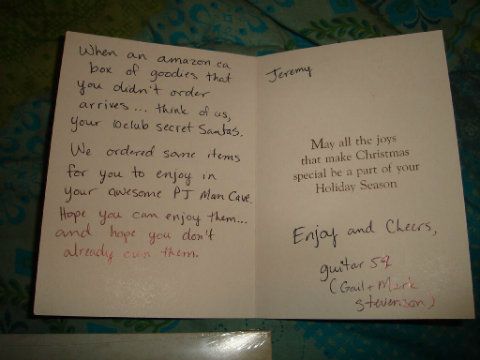 When an amazon.ca
box of goodies that
you didn't order
arrives... think of us,
your 10club secret Santas.
We ordered some items
for you to enjoy in
your awesome PJ Man Cave.
Hope you can enjoy them...
and hope you don't
already own them.
Jeremy
May all the joys
that make Christmas
special be a part of your
Holiday Season
Enjoy and Cheers,
guitar 59
(Gail + Mark
Stevenson)